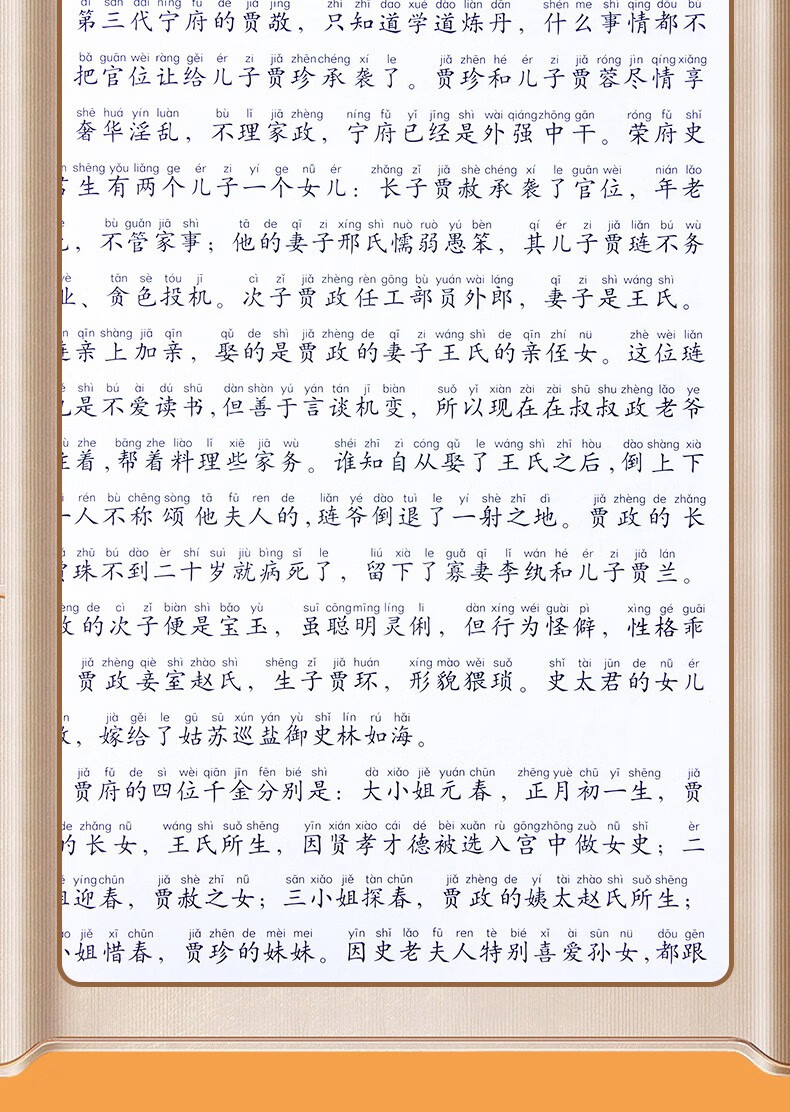 dì sān dài níng fǔ de jiǎ jìng zhǐ zhī dào xué dào liàn dān shén me shì qíng dōu bù
第三代宁府的贾敬，只知道学道炼丹，什么事情都不
bǎ guān wèi ràng gěi ér zi jiǎ zhēn chéng xí le jiǎ zhēn hé ér zi jiǎ róng jìn qíng xiǎng
把官位让给儿子贾珍承袭了。贾珍和儿子贾蓉尽情享
shē huá yín luàn bù lǐ jiā zhèng níng fǔ yǐ jīng shì wài qiáng zhōng gān róng fǔ shǐ
奢华淫乱，不理家政，宁府已经是外强中干。荣府史
shēng yǒu liǎng ge ér zi yí ge nǚ ér zhǎng zǐ jiǎ shè chéng xí le guān wèi nián lǎo
生有两个儿子一个女儿：长子贾赦承袭了官位，年老
bù guǎn jiā shì tā de qī zi xíng shì nuò ruò yú bèn qí ér zi jiǎ liǎn bú wù
，不管家事；他的妻子邢氏懦弱愚笨，其儿子贾琏不务
tān sè tóu jī cì zǐ jiǎ zhèng rèn gōng bù yuán wài láng qī zi shì wáng shì
业、贪色投机。次子贾政任工部员外郎，妻子是王氏。
qīn shàng jiā qīn qǔ de shì jiǎ zhèng de qī zi wáng shì de qīn zhí nü zhè wèi liǎn
亲上加亲，娶的是贾政的妻子王氏的亲侄女。这位琏
shì bú ài dú shū dàn shàn yú yán tán jī biàn suǒ yǐ xiàn zài zài shū shu zhèng lǎo ye
是不爱读书，但善于言谈机变，所以现在在叔叔政老爷
zhe bāng zhe liào lǐ xiē jiā wù shéi zhī zì cóng qǔ le wáng shì zhī hòu dào shàng xià
着，帮着料理些家务。谁知自从娶了王氏之后，倒上下
rén bù chēng sòng tā fū ren de liǎn yé dào tuì le yí shè zhī dì jiǎ zhèng de zhǎng
一人不称颂他夫人的，琏爷倒退了一射之地。贾政的长
zhū bú dào èr shí suì jiù bìng sǐ le liú xià le guǎ qī lǐ wán hé ér zi jiǎ lán
珠不到二十岁就病死了，留下了寡妻李纨和儿子贾兰。
de cì zǐ biàn shì bǎo yù suī cōng míng líng lì dàn xíng wéi guài pì xìng gé guāi
的次子便是宝玉，虽聪明灵俐，但行为怪僻，性格乖
jiǎ zhèng qiè shì zhào shì shēng zǐ jiǎ huán xíng mào wěi suǒ shǐ tài jūn de nǚ ér
贾政妾室赵氏，生子贾环，形貌猥琐。史太君的女儿
jià gěi le gū sū xún yán yù shǐ lín rú hǎi
，嫁给了姑苏巡盐御史林如海。
jiǎ fǔ de sì wèi qiān jīn fēn bié shì dà xiǎo jiě yuán chūn zhēng yuè chū yī shēng jiǎ
贾府的四位千金分别是：大小姐元春，正月初一生，贾
de zhǎng nǚ wáng shì suǒ shēng yīn xián xiào cái dé bèi xuǎn rù gōng zhōng zuò nǚ shǐ èr
的长女，王氏所生，因贤孝才德被选入宫中做女史；二
yíng chūn jiǎ shè zhī nǚ sān xiǎo jiě tàn chūn jiǎ zhèng de yí tài zhào shì suǒ shēng
迎春，贾赦之女；三小姐探春，贾政的姨太赵氏所生；
jiě xī chūn jiǎ zhēn de mèi mei yīn shǐ lǎo fū ren tè bié xǐ ài sūn nü dōu gēn
姐惜春，贾珍的妹妹。因史老夫人特别喜爱孙女，都跟